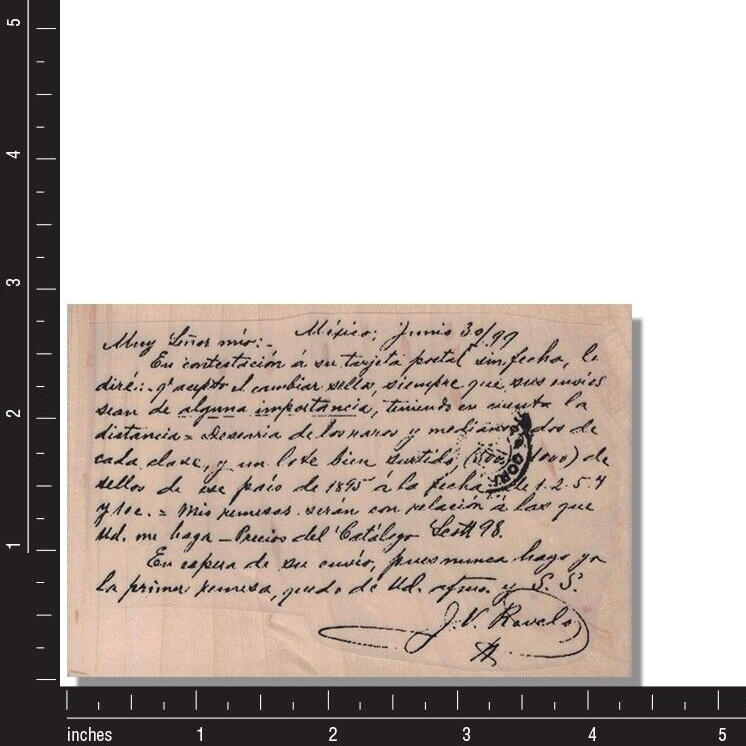 México, Junio 30/99
Muy Señor mio:-
En contestación á su tarjeta postal sin fecha, le
diré:- qe acepto el cambiar sellos, siempre que sus envios
sean de alguna importancia, teniendo en cuenta la
distancia = Desearia de los raros y medianos dos de
cada clase, y un lote bien surtido (500 1000) de
sellos de ese pais de 1895 á la fecha de 1. 2. 5. 4
y 10c. = Mis remesas serán con relación á las que
Ud. me haga - Precios del Catálogo Scott 98.
En espera de su envio, pues nunca hago yo
la primer remesa, quedo de Ud. afmo. y S. S.
J. V. Ravelo
5
4
3
2
1
inches 1 2 3 4 5